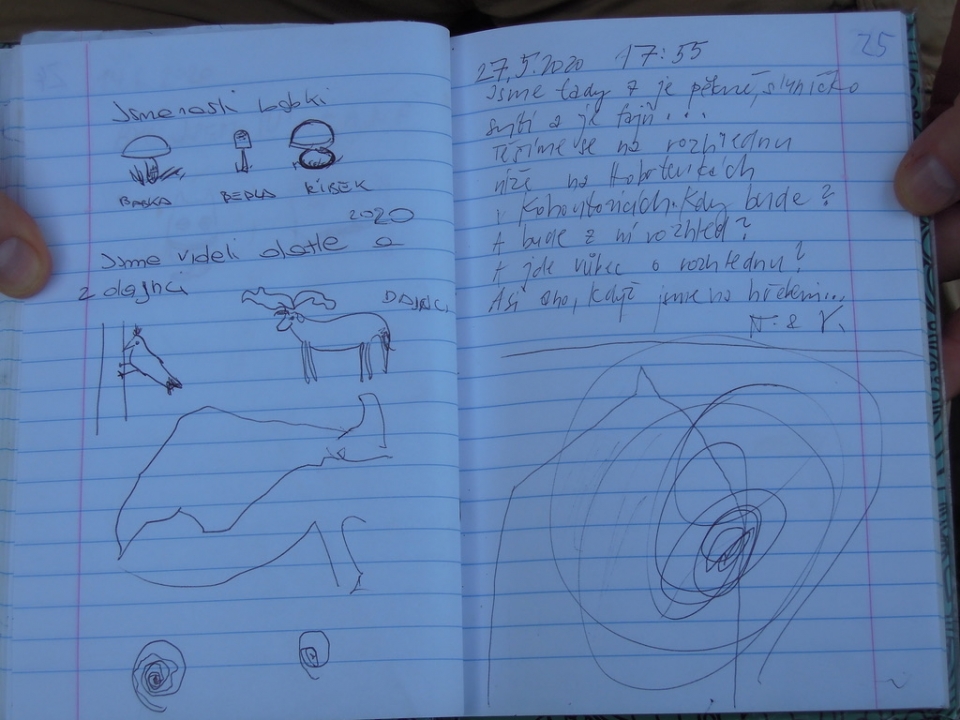 Jsme našli bobki
BABKA BEDLA HŘIBEK
2020
Jsme viděli datle a
2 daňci
DAŇCI
25
27.5.2020 17:55
Jsme tady 7 je pěkně, slyníčko
svítí a je fajn...
Těšíme se na rozhlednu
níže na
v Kohoutovicích. Kdy bude?
A bude z ní rozhled?
A jde vůbec o rozhlednu?
Asi ano, když jsme na hřebeni...
N. & V.